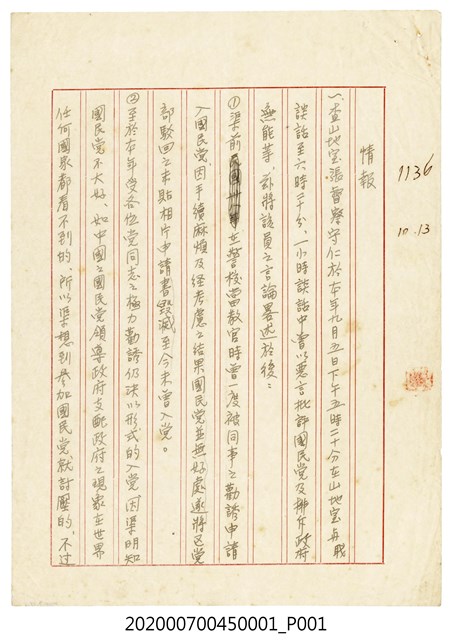 情報
1136
10.13
一、查山地室張督察守仁於本年九月五日下午五時二十分在山地室與職
談話至六時二十分,一小時談話中曾以惡言批評國民党及排斥政府
無能等,茲將該員之言論畧述於後:
①渠前在警校當教官時曾一度被同事之勸誘申請
入國民党,因手續麻煩及経考慮之結果國民党並無好處遂將区党
部駁回之未貼相片申請書毀滅至今未曾入党。
②至於本年受各位党同志之極力勸誘仍決以形式的入党,因渠明知
國民党不大好,如中國之國民党領導政府支配政府之現象在世界
任何國家都看不到的,所以渠想到参加國民党就討壓的,不过
202000700450001_P001